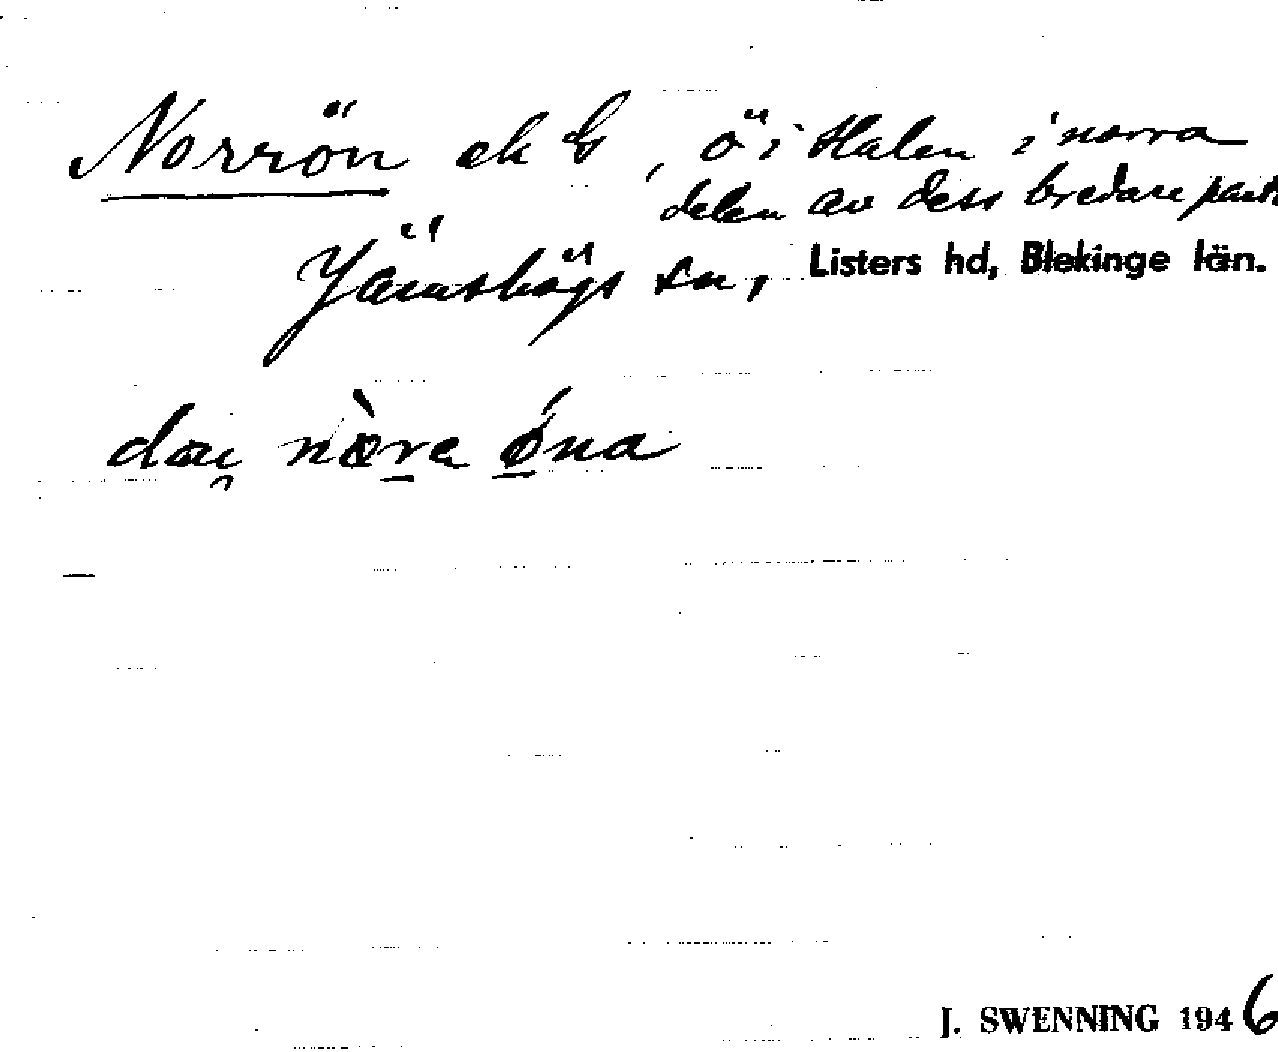 Norrön ek G, ö i Halen i norra
delen av dess bredare part
Jämshögs sn, Listers hd, Blekinge län.
nòra óna
J. SWENNING 1946